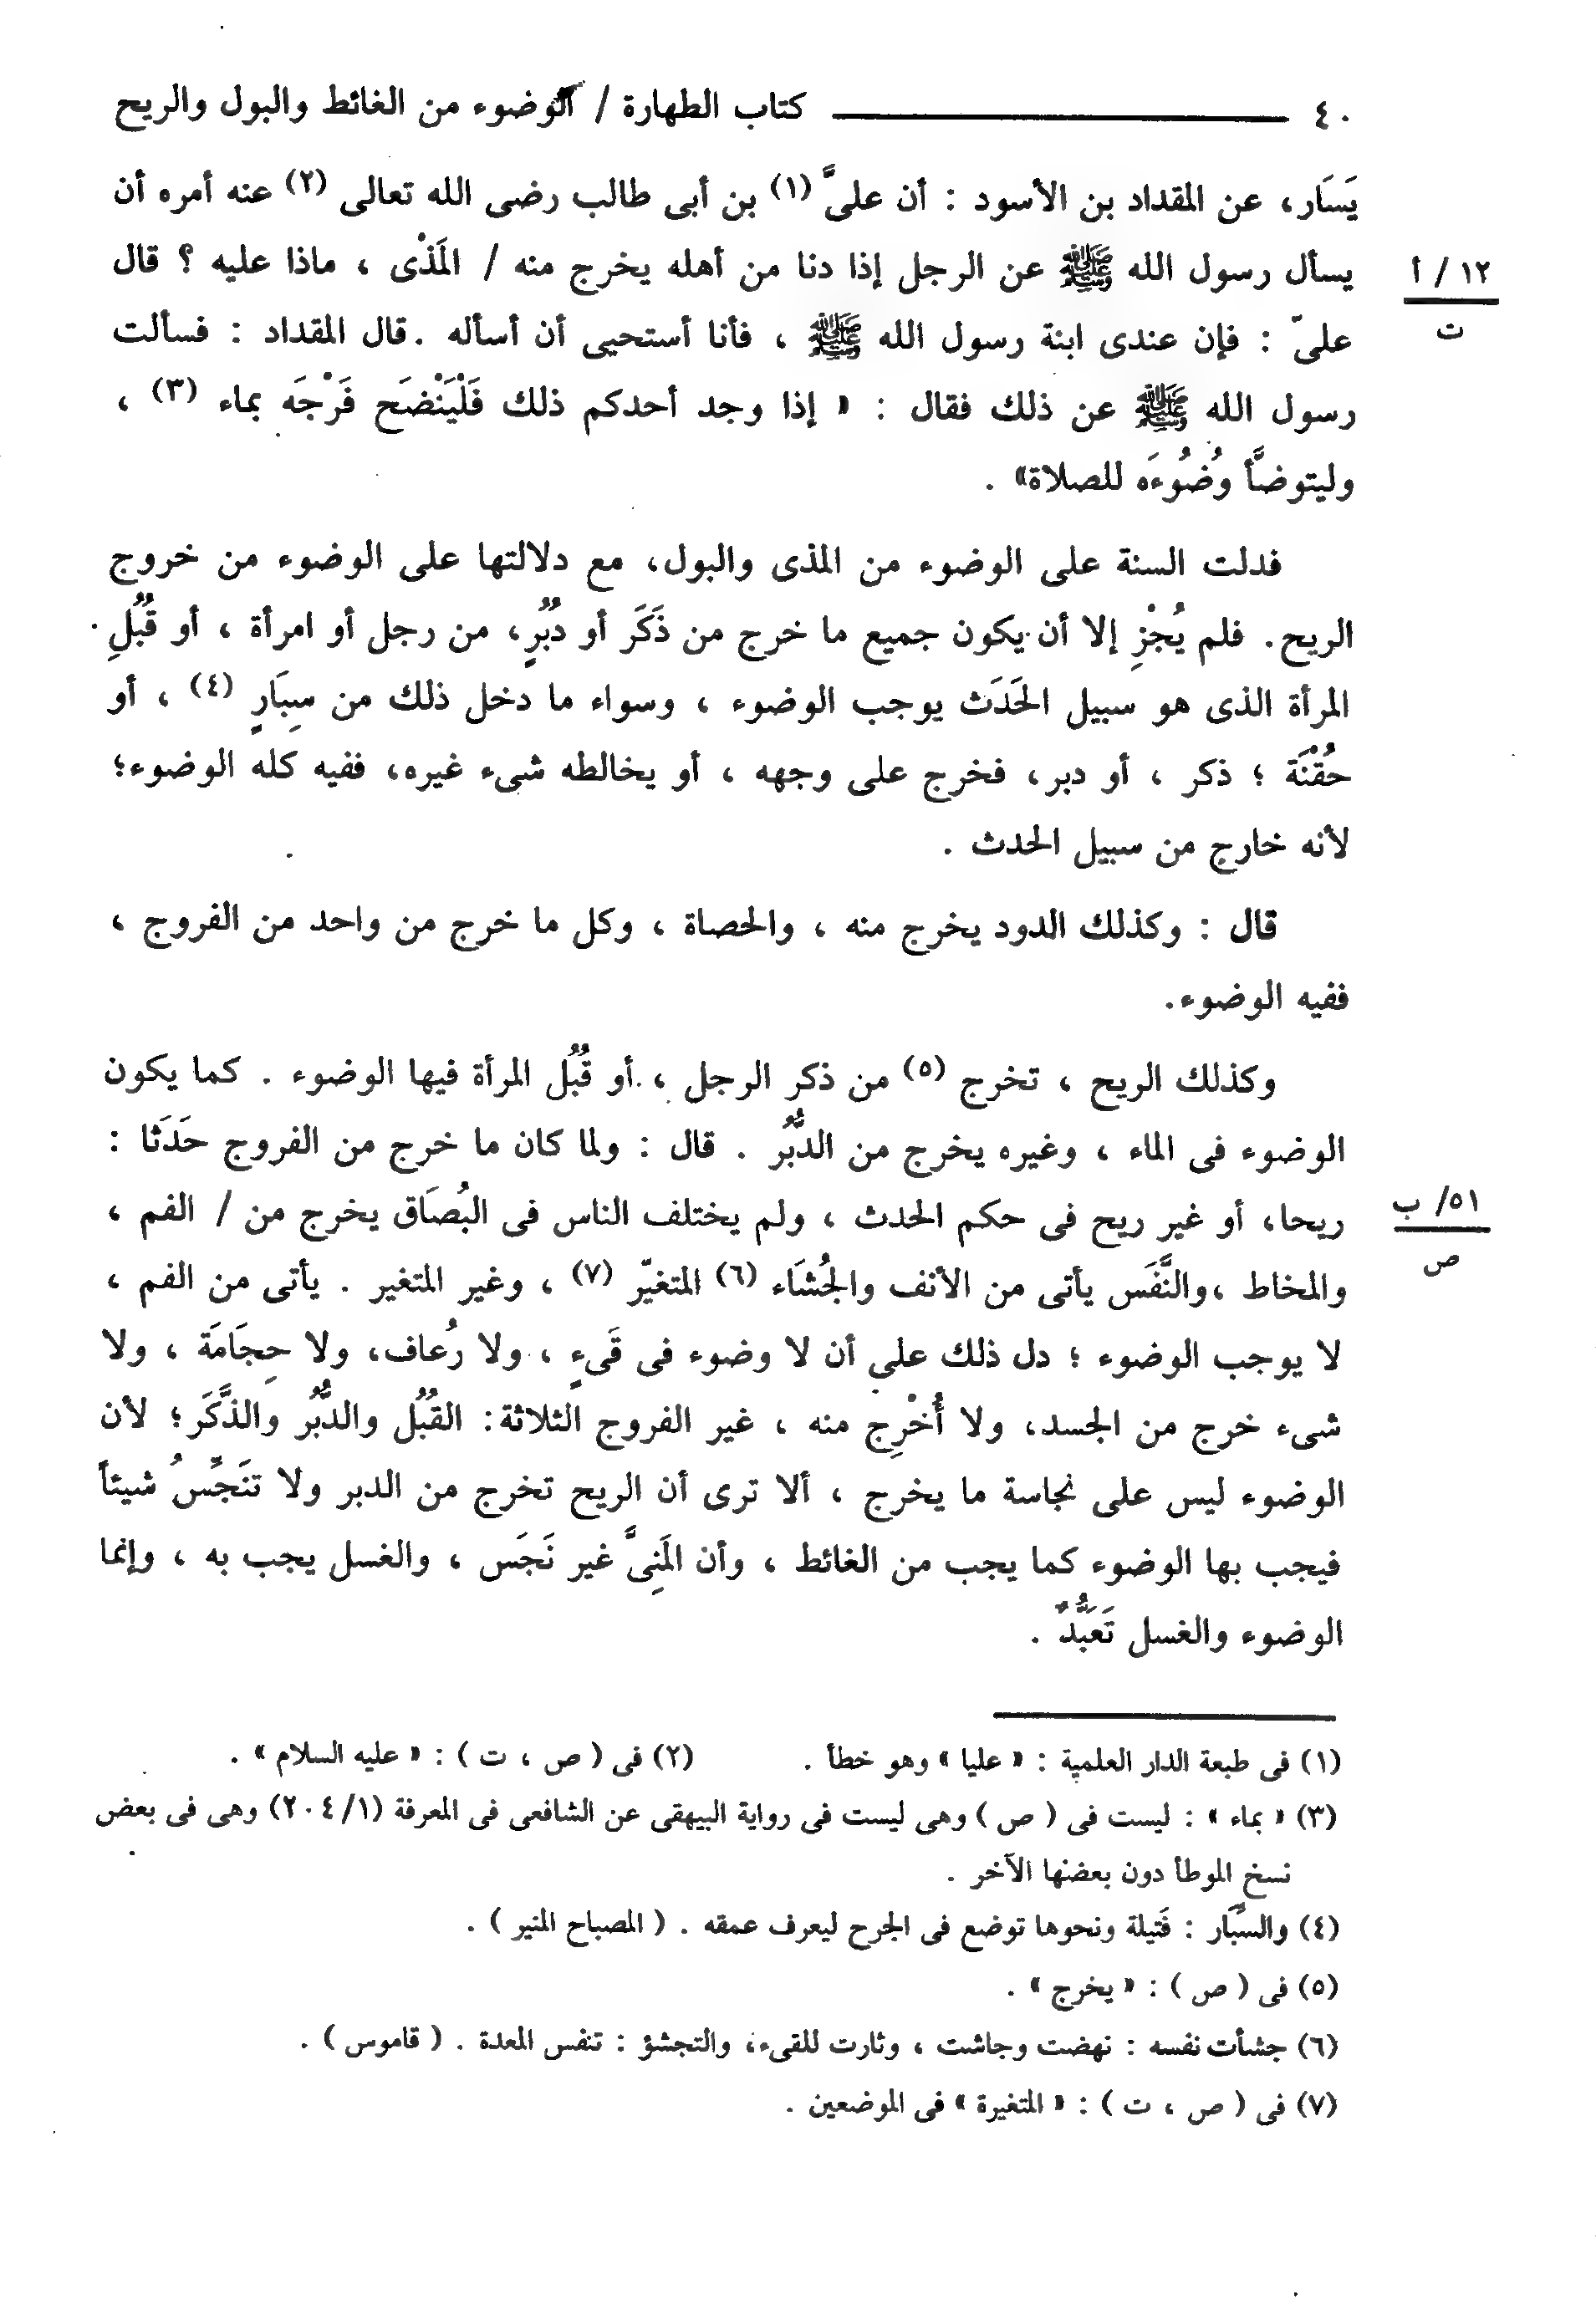 ٤٠ كتاب الطهارة / الوضوء من الغائط والبول والريح
يَسَار، عن المقداد بن الأسود : أن علىَّ (١) بن أبى طالب رضى الله تعالى (٢) عنه أمره أن
يسأل رسول الله ﷺ عن الرجل إذا دنا من أهله يخرج منه / المَذْى ، ماذا عليه ؟ قال
١٢ / أ
ت
علىّ : فإن عندى ابنة رسول الله ﷺ ، فأنا أستحيى أن أسأله . قال المقداد : فسألت
رسول الله ﷺ عن ذلك فقال : « إذا وجد أحدكم ذلك فَلْيَنْضَح فَرْجَه بماء (٣) ،
وليتوضَّأ وُضُوءَه للصلاة» .
فدلت السنة على الوضوء من المذى والبول، مع دلالتها على الوضوء من خروج
الريح. فلم يُجْزِ إلا أن يكون جميع ما خرج من ذَكَر أو دُبُرٍ، من رجل أو امرأة ، أو قُبُلِ
المرأة الذى هو سبيل الحَدَث يوجب الوضوء ، وسواء ما دخل ذلك من سِبَارٍ (٤) ، أو
حُقْنَة ؛ ذكر ، أو دبر، فخرج على وجهه ، أو يخالطه شىء غيره، ففيه كله الوضوء؛
لأنه خارج من سبيل الحدث .
قال : وكذلك الدود يخرج منه ، والحصاة ، وكل ما خرج من واحد من الفروج ،
ففيه الوضوء.
وكذلك الريح ، تخرج (٥) من ذكر الرجل ، أو قُبُل المرأة فيها الوضوء . كما يكون
الوضوء فى الماء ، وغيره يخرج من الدُّبُر . قال : ولما كان ما خرج من الفروج حَدَثا :
ريحا، أو غير ريح فى حكم الحدث ، ولم يختلف الناس فى البُصَاق يخرج من / الفم ،
٥١/ ب
ص
والمخاط ،والنَّفَس يأتى من الأنف والجُشَاء (٦) المتغيّر (٧) ، وغير المتغير . يأتى من الفم ،
لا يوجب الوضوء ؛ دل ذلك على أن لا وضوء فى قَىءٍ ، ولا رُعاف، ولا حِجَامَة ، ولا
شىء خرج من الجسد، ولا أُخْرِج منه ، غير الفروج الثلاثة: القُبُل والدُّبُر والذَّكَر؛ لأن
الوضوء ليس على نجاسة ما يخرج ، ألا ترى أن الريح تخرج من الدبر ولا تنَجِّسُ شيئاً
فيجب بها الوضوء كما يجب من الغائط ، وأن المَنِىَّ غير نَجَس ، والغسل يجب به ، وإنما
الوضوء والغسل تَعَبُّدٌ .
(١) فى طبعة الدار العلمية : « عليا » وهو خطأ . (٢) فى ( ص ، ت ) : « عليه السلام » .
(٣) « بماء » : ليست فى ( ص ) وهى ليست فى رواية البيهقى عن الشافعى فى المعرفة (١/ ٢٠٤) وهى فى بعض
نسخ الموطأ دون بعضها الآخر .
(٤) والسبَّار : فَتيلة ونحوها توضع فى الجرح ليعرف عمقه . ( المصباح المنير ) .
(٥) فى ( ص ) : « يخرج » .
(٦) جشأت نفسه : نهضت وجاشت ، وثارت للقىء، والتجشؤ : تنفس المعدة . ( قاموس ) .
(٧) فى ( ص ، ت ) : « المتغيرة » فى الموضعين .